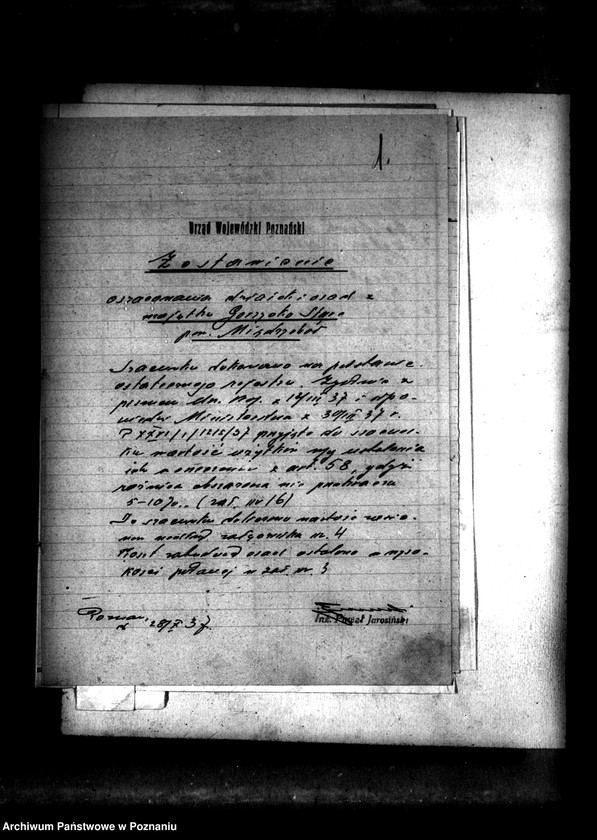 1.
Urząd Wojewódzki Poznański
Zestawienie
oszacowania działek i osad z
majątku Gorzyce Stare
pow. Międzychód
Szacunku dokonano na podstawie
ostatecznego rejestru. Zgodnie z
pismem Min. Z 37
Ministerstwa z 37 r.
1/1212/37 przyjęto do szacun-
ku wartość użytków wg ustalenia
ich z art. 58, gdyż
różnica obszarowa nie przekracza
5-10%. (zał. nr 6)
Do szacunku wartość
nr. 4
Koszt zabudowań osad ustalono w wyso-
kości podanej w zał. nr. 3
Poznań,
28/X 37
Inż. Paweł Jarosiński
Archiwum Państwowe w Poznaniu